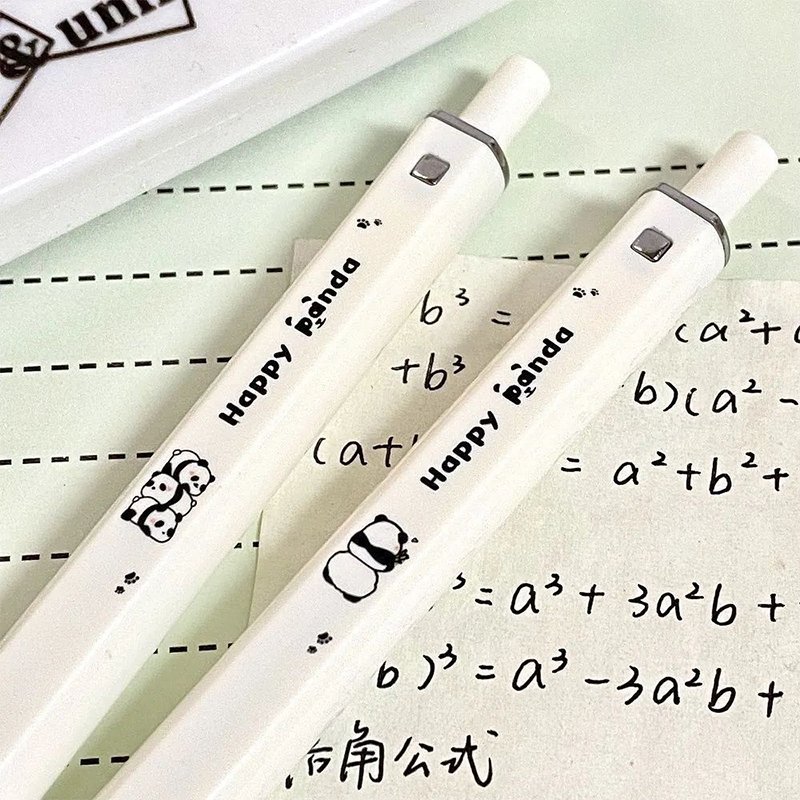 & uni
Happy panda
Happy panda
b³ =
(a²+
+b³
b)(a² -
(a+
= a²+b²+
³ = a³ + 3a²b +
b)³ = a³ - 3a²b +
角公式